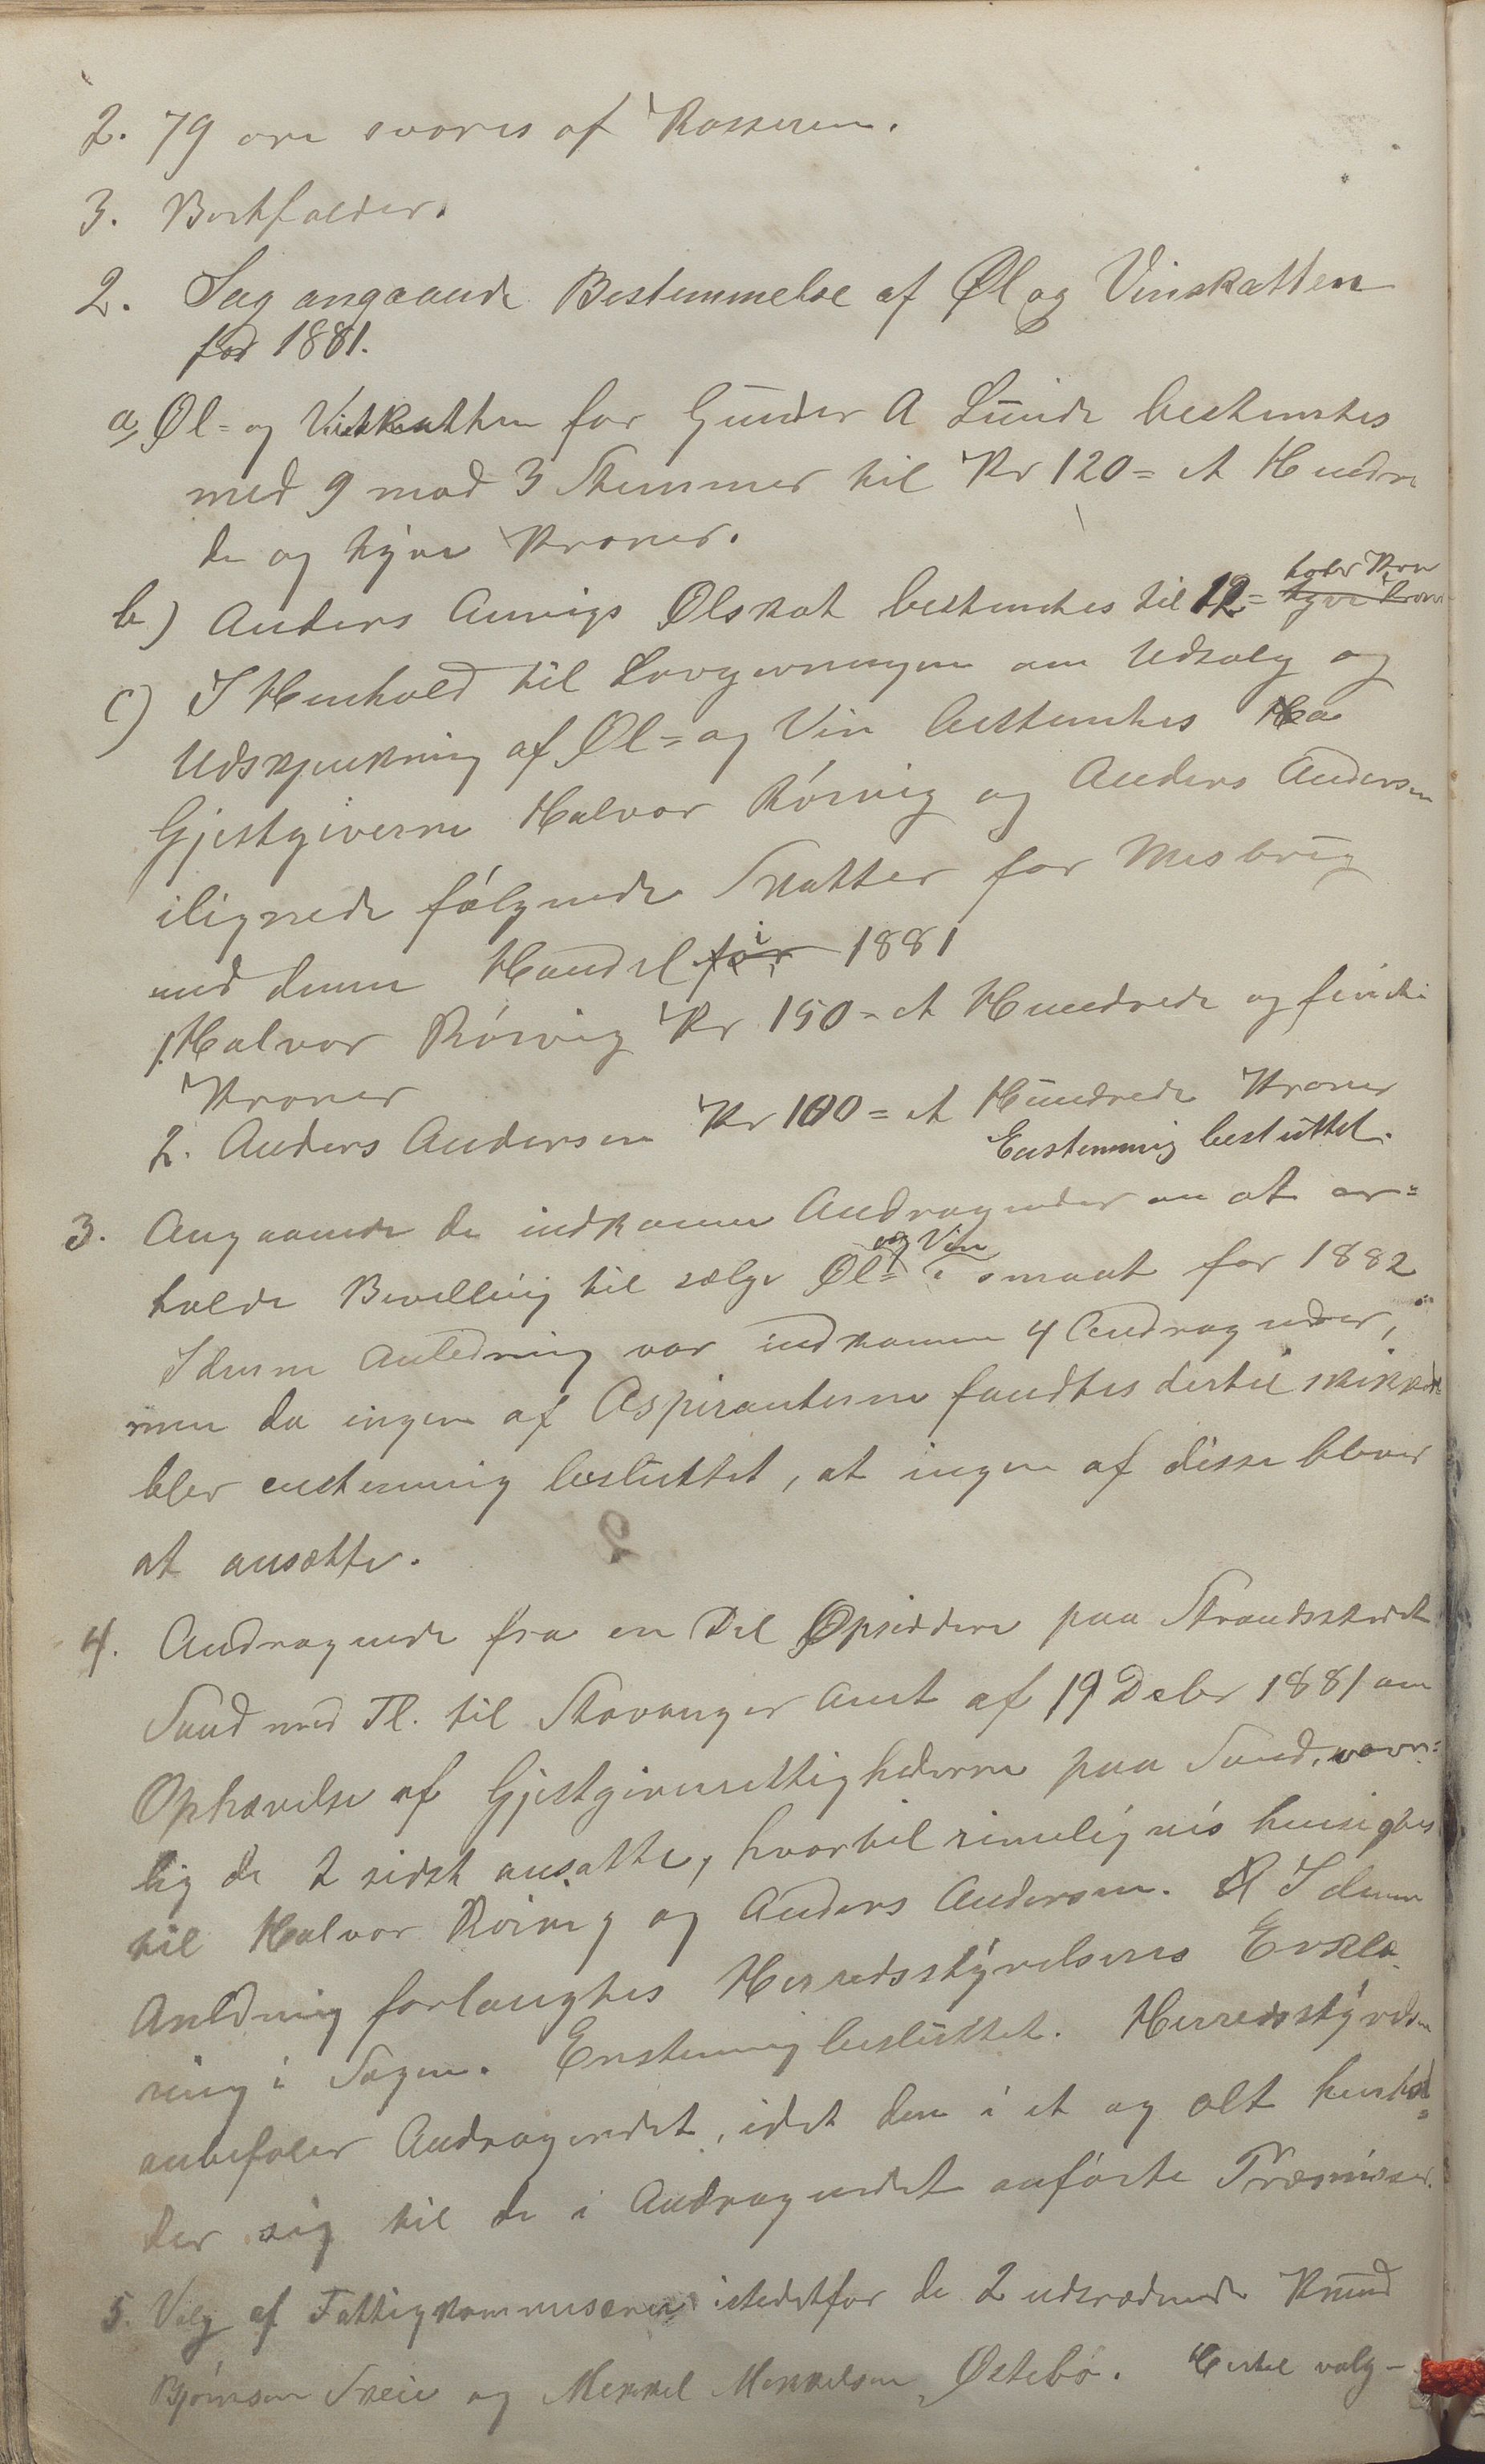 2. 79 øre svares af Kasseren.
3. Bortfalder.
2. Sag angaaende Bestemmelse af Øl og Vinskatten
for 1881.
a, Øl- og Vinskatten for Gunder A Lunde bestemtes
med 9 mod 3 Stemmer til Kr 120 = et Hundre
de og tyve Kroner.
b) Anders Aarvigs Ølskat bestemtes til 12 = tolv Kron
c) I Henhold til Lovgivningen om Udsalg og
Udskjenkning af Øl- og Vin bestemtes
Gjestgiverne Halvor Rörvig og Anders Andersen
ilignede følgende Skatter for Misbrug
med denne Handel i 1881
1. Halvor Rörvig Kr 150 = et Hundrede og femti
Kroner
2. Anders Andersen Kr 100 = et Hundrede Kroner
Enstemmig besluttet.
3. Angaaende de indkomne Andragender om at er=
holde Bevilling til sælge Øl- og Vin i smaat for 1882
I denne Anledning var indkomne 4 Andragender,
men da ingen af Aspiranterne fandtes dertil skikkede
blev enstemmig besluttet, at ingen af disse bliver
at ansætte.
4. Andragende fra en Del Opsiddere paa Strandstedet
Sand med Fl. til Stavanger Amt af 19 Debr 1881 om
Ophævelse af Gjestgiverrettighederne paa Sand, navn=
lig de 2 sidst ansatte, hvortil rimeligvis hensigtes
til Halvor Rörvig og Anders Andersen. I denne
Anledning forlangtes Herredsstyrelsens Erklæ
ring i Sagen. Enstemmig besluttet. Herredsstyrelsen
anbefaler Andragendet, idet den i et og alt henhol=
der sig til de i Andragendet anførte Præmisser.
5. Valg af Fattigkommisærer istedetfor de 2 udtrædende Knud
Bjørnsen Sveie og Mekkel Mekkelsen Østebö. Hertil valg-